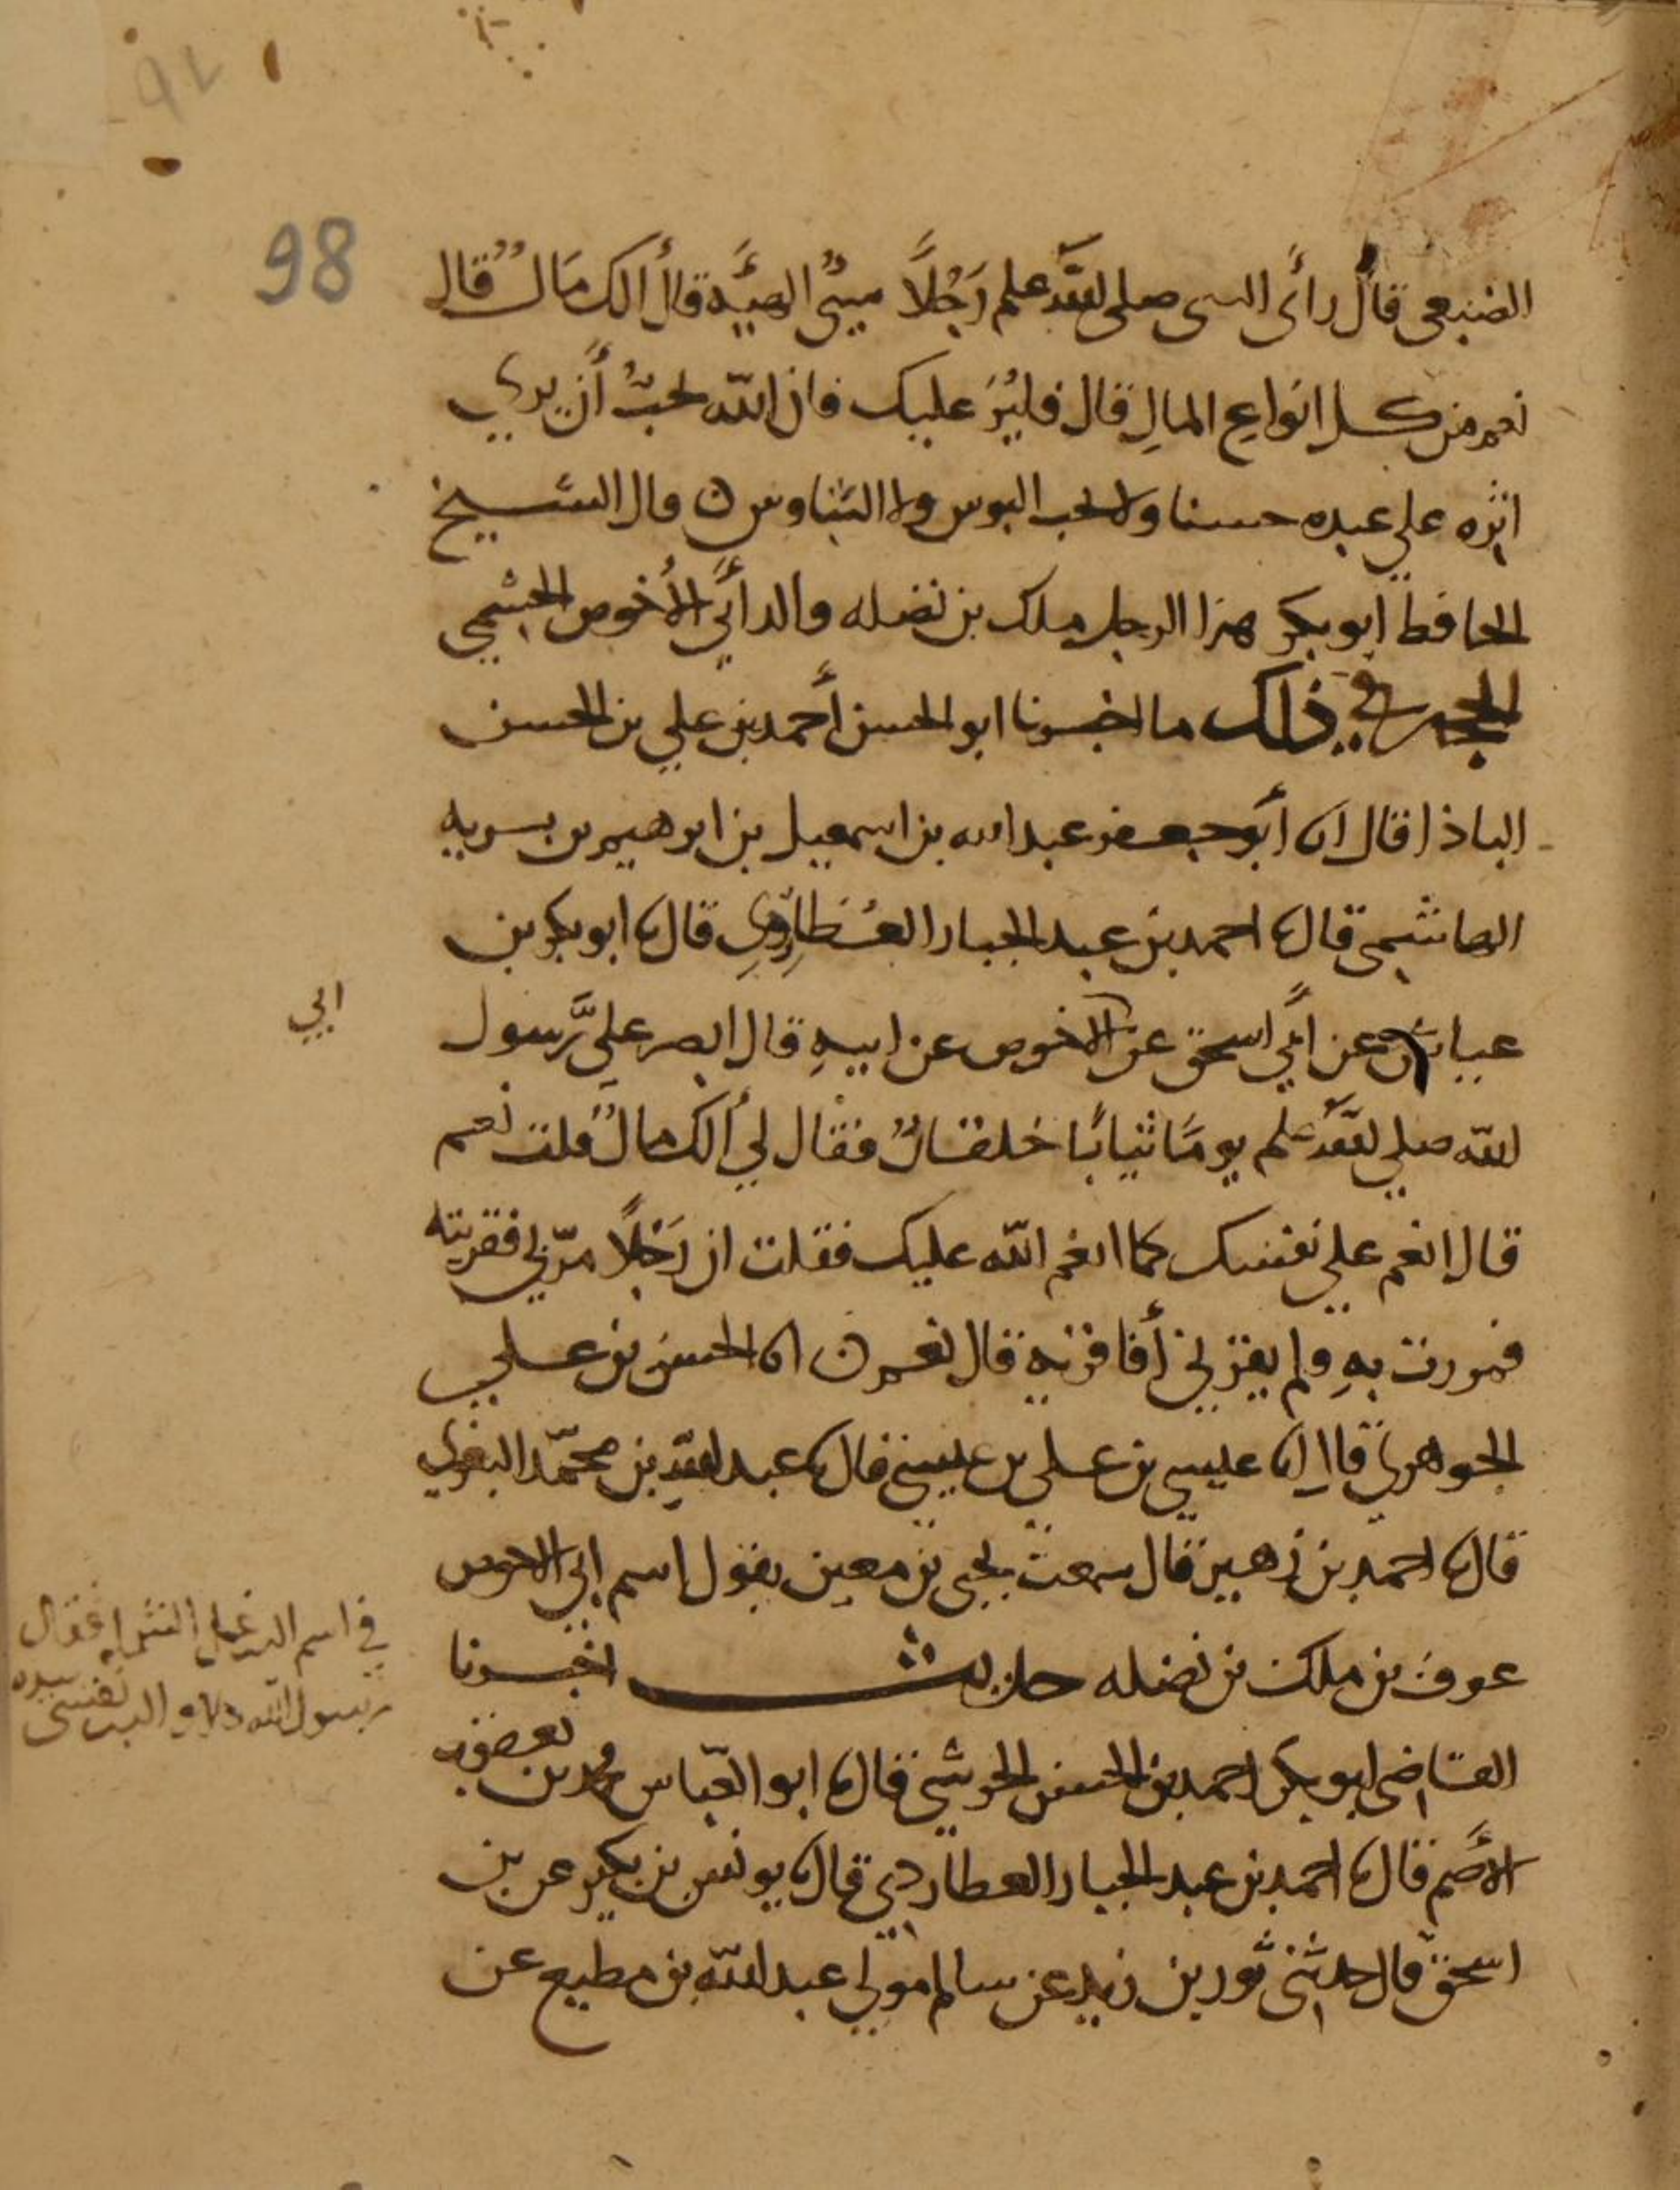 98
الضبعي قال رأى النبي صلى الله علم رَجُلًا سيّئ الهيّه قال ألك مَالٌ قال
نعم من كل انواع المالِ قال فليُرَ عليك فان الله يحبّ أن يرى
اثره على عبده حسنا ولا يحب البوس ولا التباوس ن قال الشيخ
الحافظ ابو بكر هذا الرجل ملك بن نضله والد أبي الأخوص الجشمي
الحجه في ذلك ما اخبرنا ابو الحسن أحمد بن علي بن الحسن
الباذا قال انا أبو جعفر عبد الله بن اسمعيل بن ابرهيم بن بريه
الهاشمي قال نا احمد بن عبد الجبار العطاردي قال نا ابو بكر بن
عياش عن أبي اسحق عن الاخوص عن ابيهِ قال ابصر عليَّ رسول
ابي
الله صلي الله علم يومًا ثيابًا خلقانٌ فقال لي ألك مالٌ قلت نعم
قال انعم علي نفسك كما انعم الله عليك فقلت ان رَجُلًا مرّ بي فقريته
فمررت بهِ ولم يقرني أفاقريه قال نعم ن انا الحسن بن علي
الجوهري قال انا عيسي بن علي بن عيسى قال نا عبد الله بن محمّد البغوي
قال نا احمد بن زهير قال سمعت يحيى بن معين يقول اسم ابي الاحوص
عوف بن ملك بن نضله حديث اخبرنا
في اسم الذي غل الشملة فقال
رسول الله والذي نفسي بيده
القاضي ابو بكر احمد بن الحسن الحرشي قال نا ابو العبّاس محمد بن يعقوب
الأصم قال نا احمد بن عبد الجبار العطاردي قال نا يونس بن بكير عن بن
اسحق قال حدثني ثور بن زيد عن سالم مولي عبد الله بن مطيع عن